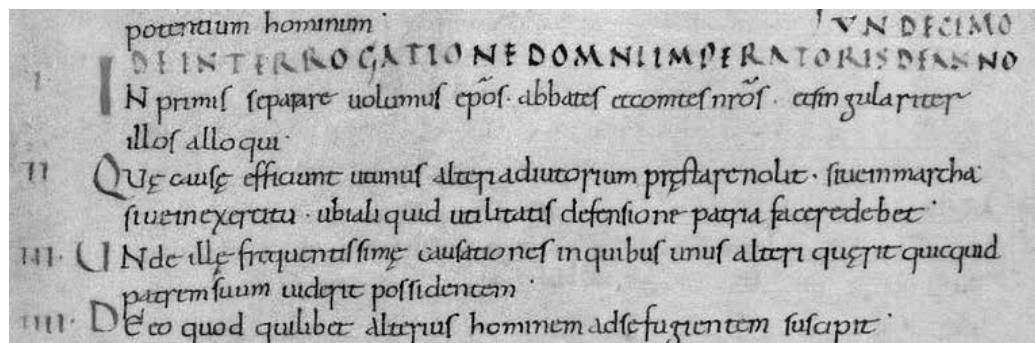 potentium hominum·
UNDECIMO
DEINTERROGATIONEDOMNIIMPERATORISDEANNO
I IN primis separare uolumus ep̃os· abbates etcomites nr̃os· etsingulariter
illos alloqui·
II Quę causę efficiunt utunus alteri adiutorium pręstare nolit· siue in marcha
siue in exercitu· ubi aliquid utilitatis defensione patria facere debet·
III· UNde illę frequentissimę causationes in quibus unus alteri quęrit quicquid
patrem suum uiderit possidentem·
IIII· De eo quod quilibet alterius hominem ad se fugientem suscipit·